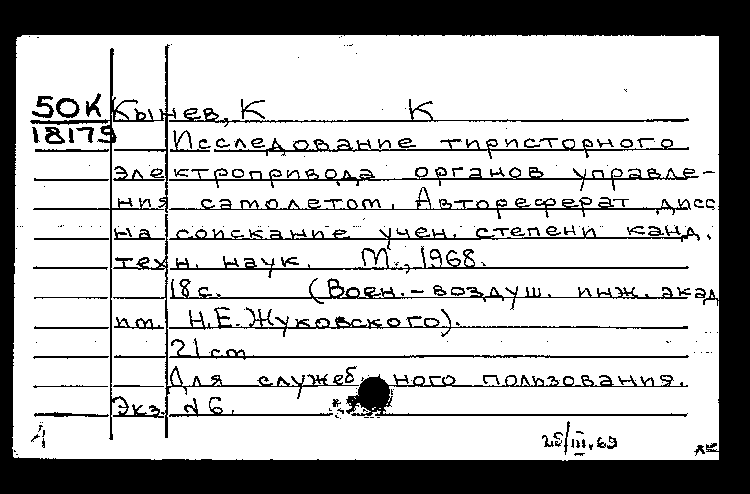 50К Кынев, К К
18179 Исследование тиристорного
электропривода органов управле-
ния самолетом. Автореферат дисс
на соискание учен. степени канд.
техн. наук. М., 1968.
18 с. (Воен.-воздуш. инж. акад
им. Н.Е. Жуковского).
21 cm
Для служебного пользования.
Экз. № 6.
25/III.69